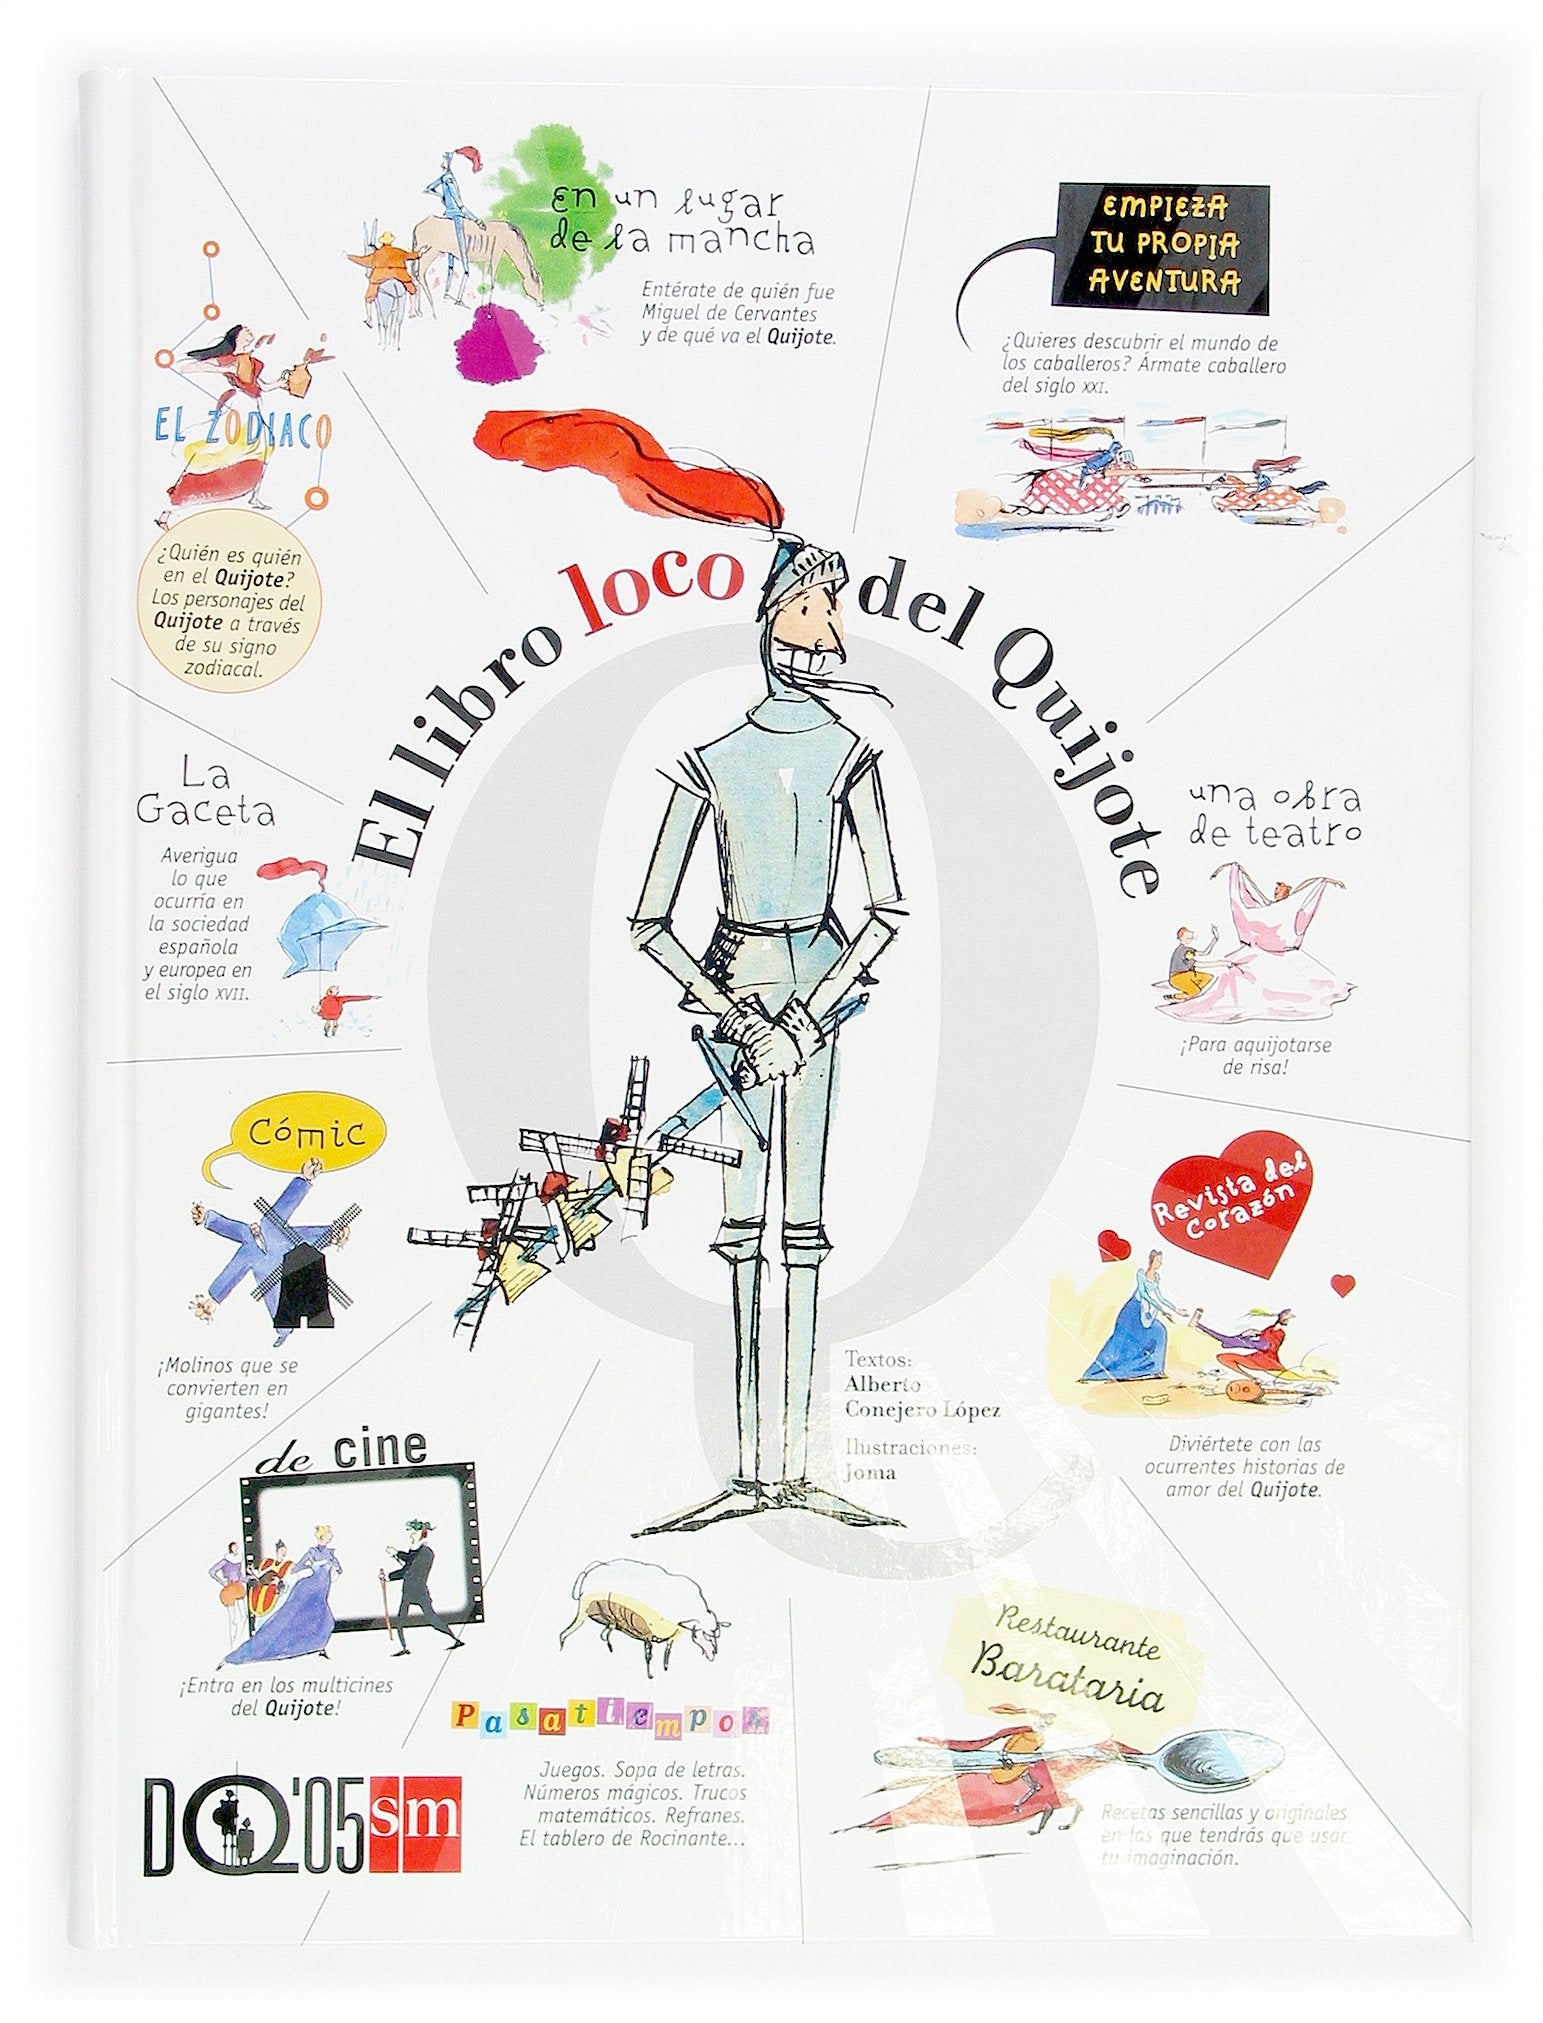 en un lugar
de la mancha
Entérate de quién fue
Miguel de Cervantes
y de qué va el Quijote.
EMPIEZA
TU PROPIA
AVENTURA
¿Quieres descubrir el mundo de
los caballeros? Ármate caballero
del siglo XXI.
EL ZODIACO
¿Quién es quién
en el Quijote?
Los personajes del
Quijote a través
de su signo
zodiacal.
El libro loco del Quijote
La
Gaceta
Averigua
lo que
ocurría en
la sociedad
española
y europea en
el siglo XVII.
una obra
de teatro
¡Para aquijotarse
de risa!
Cómic
¡Molinos que se
convierten en
gigantes!
Revista del
Corazón
Diviértete con las
ocurrentes historias de
amor del Quijote.
Textos:
Alberto
Conejero López
Ilustraciones:
Joma
de cine
¡Entra en los multicines
del Quijote!
Pasatiempos
Juegos. Sopa de letras.
Números mágicos. Trucos
matemáticos. Refranes.
El tablero de Rocinante...
Restaurante
Barataria
Recetas sencillas y originales
en las que tendrás que usar
tu imaginación.
DQ'05 sm